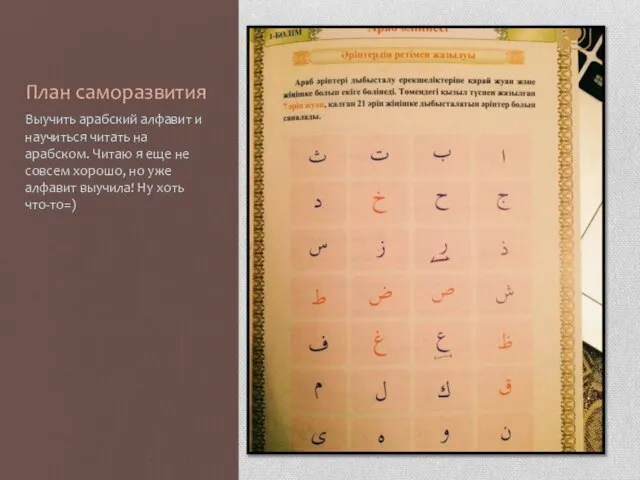 План саморазвития
Выучить арабский алфавит и
научиться читать на
арабском. Читаю я еще не
совсем хорошо, но уже
алфавит выучила! Ну хоть
что-то=)
1-БӨЛІМ
Араб
Әріптердің ретімен жазылуы
Араб әріптері дыбысталу ерекшеліктеріне қарай жуан және
жіңішке болып екіге бөлінеді. Төмендегі қызыл түспен жазылған
7 әріп жуан, қалған 21 әріп жіңішке дыбысталатын әріптер болып
саналады.
ا ب ت ث
ج ح خ د
ذ ر ز س
ش ص ض ط
ظ ع غ ف
ق ك ل م
ن و ه ى